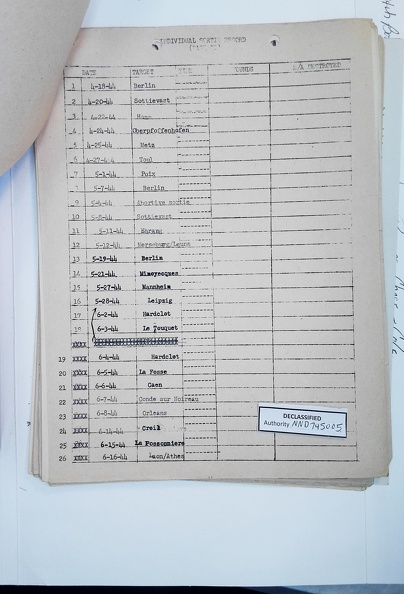 INDIVIDUAL SORTIE RECORD
DATE TARGET WOUNDS E/A DESTROYED
1 4-18-44 Berlin
2 4-20-44 Sottievast
3 4-22-44 Hamm
4 4-24-44 Oberpfoffenhofen
5 4-25-44 Metz
6 4-27-44 Toul
7 5-1-44 Poix
8 5-7-44 Berlin
9 5-4-44 Abortive sortie
10 5-8-44 Sottievast
11 5-11-44 Ehrang
12 5-12-44 Merseburg/Leuna
13 5-19-44 Berlin
14 5-21-44 Mimoyecques
15 5-27-44 Mannheim
16 5-28-44 Leipzig
17 6-2-44 Hardelot
18 6-3-44 Le Touquet
XXXX
19 XXXX 6-4-44 Hardelot
20 XXXX 6-5-44 La Fosse
21 XXXX 6-6-44 Caen
22 XXXX 6-7-44 Conde sur Noireau
23 XXXX 6-8-44 Orleans
24 XXXX 6-14-44 Creil
25 XXXX 6-15-44 La Possonniere
26 XXXX 6-16-44 Laon/Athes
DECLASSIFIED
Authority NND 745005